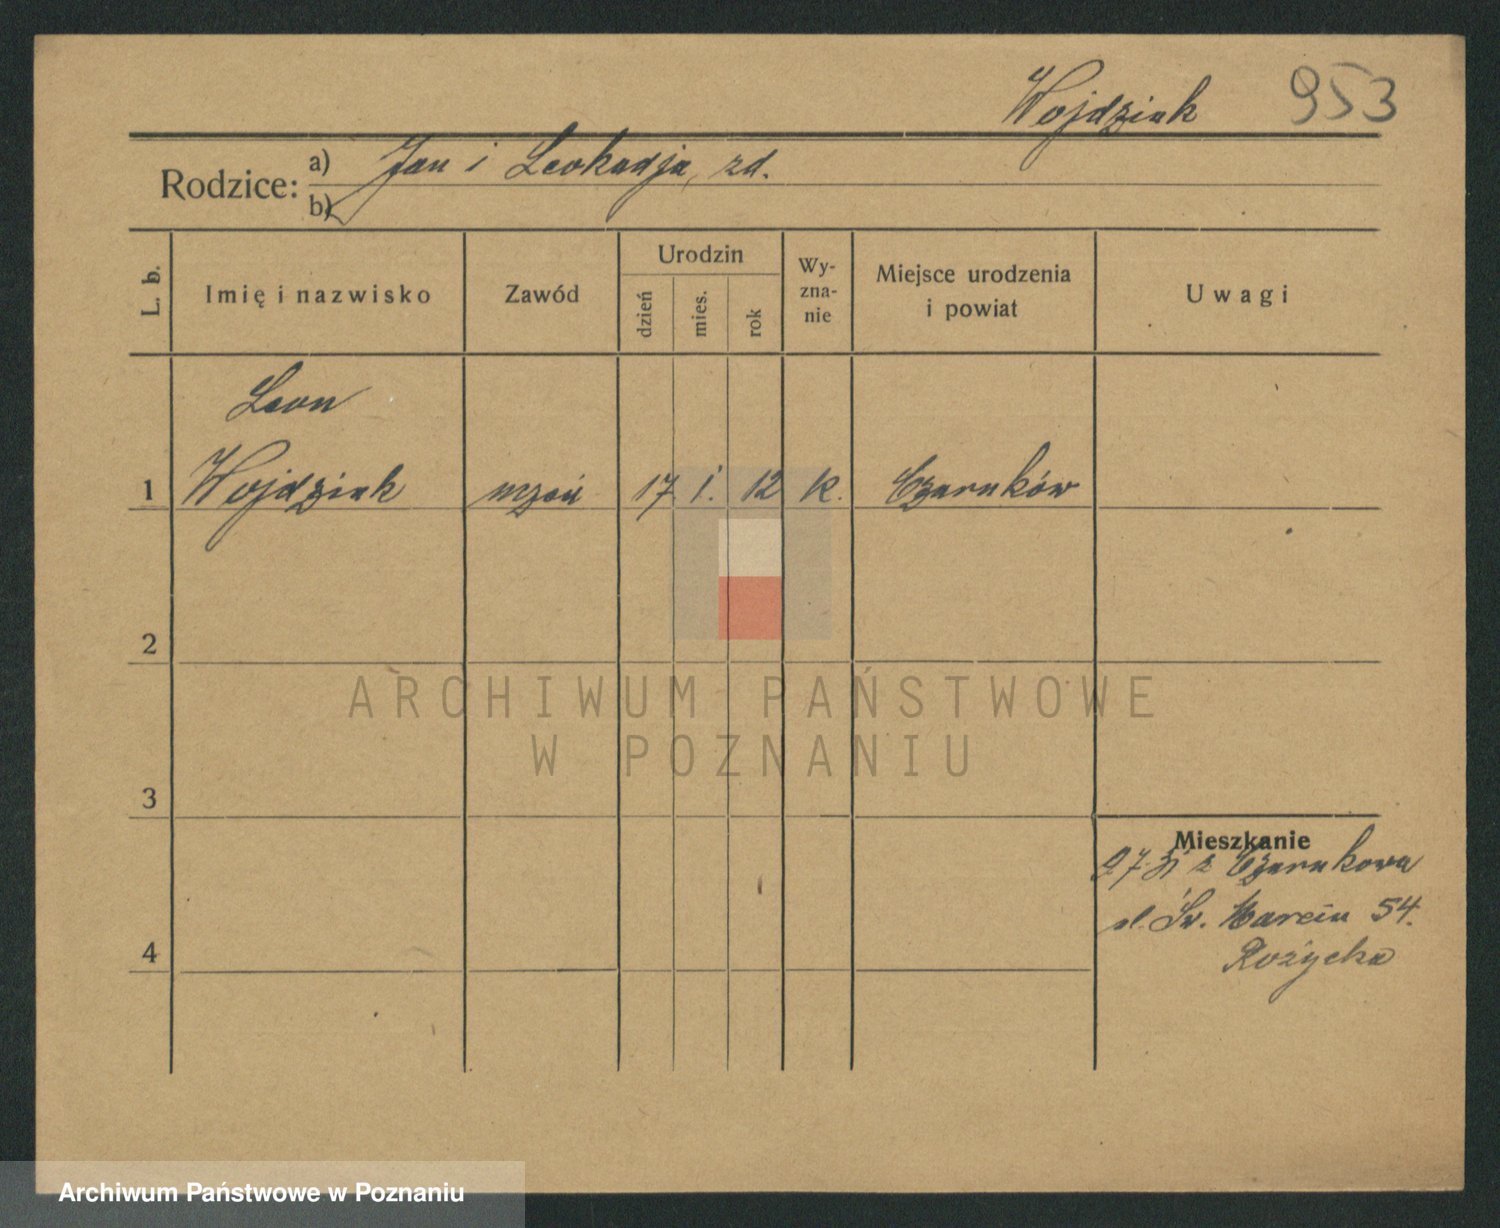 Wojdziak 953
Rodzice: a) Jan i Leokadja, zd.
b)
L. b.
Imię i nazwisko
Zawód
Urodzin
dzień
mies.
rok
Wy-
zna-
nie
Miejsce urodzenia
i powiat
Uwagi
Leon
1 Wojdziak uczeń 17 I. 12 k. Czarnków
2
ARCHIWUM PAŃSTWOWE
W POZNANIU
3
Mieszkanie
z Czarnkowa
Św. Marcin 54.
Rożycka
4
Archiwum Państwowe w Poznaniu